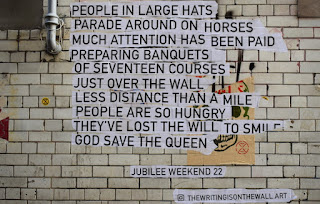 PEOPLE IN LARGE HATS
PARADE AROUND ON HORSES
MUCH ATTENTION HAS BEEN PAID
PREPARING BANQUETS
OF SEVENTEEN COURSES
JUST OVER THE WALL
LESS DISTANCE THAN A MILE
PEOPLE ARE SO HUNGRY
THEY'VE LOST THE WILL TO SMILE
GOD SAVE THE QUEEN
JUBILEE WEEKEND 22
THEWRITINGISONTHEWALL.ART